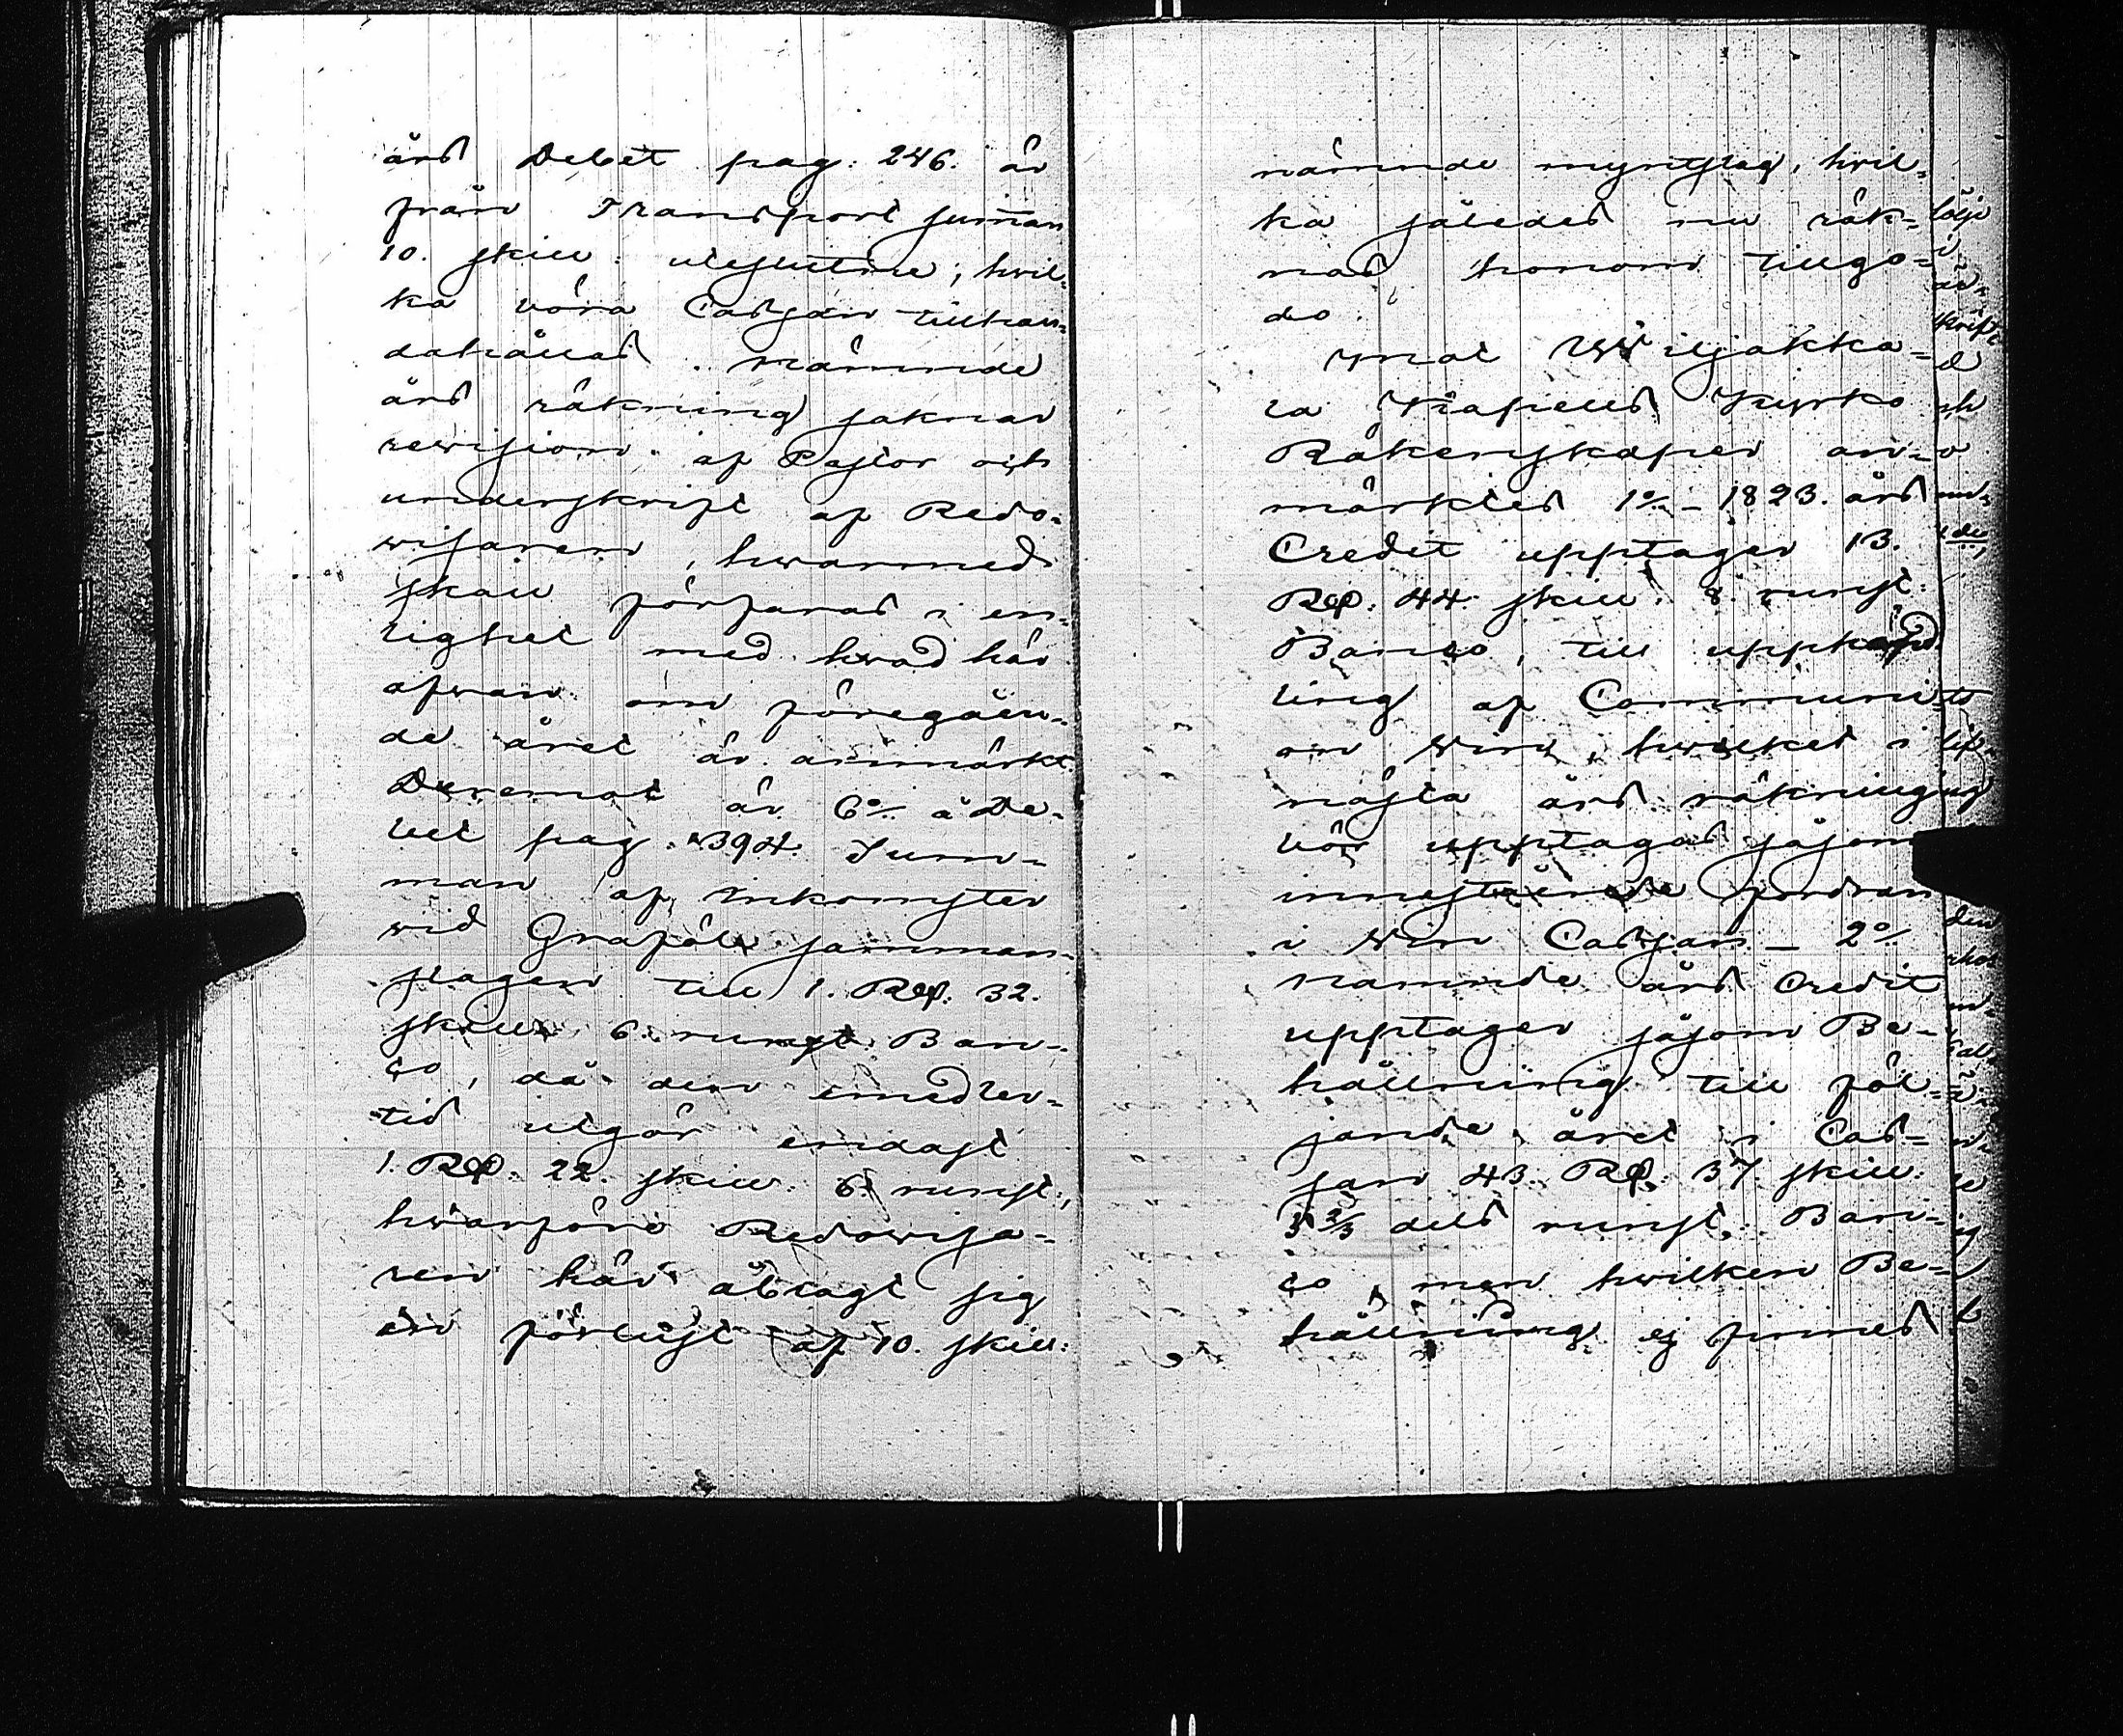 års Debet pag: 246. är
från Transport sum̄an
10. skill: uteslutne; hvil-
ka böra Cassan tillhan-
dahållas. Nämnde
års räkning saknar
revision af Pastor och
underskrift af Redo-
visaren, hvarmed
skall förfaras i en-
lighet med hvad här
ofvan om föregåen-
de året är anmärkt.
Deremot är 6:o å De-
bet pag: 394. Sum-
man af inkomster
vid Graföl samman-
slagen till 1. Rd. 32.
skill: 6. runst: Ban-
co, då den emedler-
tid utgör endast
1. Rd: 22. skill: 6. runst:,
hvarföre Redovisa-
ren här åtragt sig
en förlust af 10. skill:
nämnde myntslag, hvil-
ka således nu räk-
nas honom tillgo-
do.
Emot Wiljakka-
la Capells Kyrko
Räkenskaper an-
märktes 1:o 1823. års
Credit upptager 13.
Rd: 44 skill: 8. runst:
Banco, till
ling af Communi-
on Vin, hvilket i
nästa års räkning
bör upptagas såsom
innestående fordran
i Vin Cassan – 2:o
Nämnde års Credit
upptager såsom Be-
hållning till föl-
jande året i Cas-
san 43. Rd. 37. skill:
2/3 dels runst: Ban-
co, men hvilken Be-
hållning ej finnes